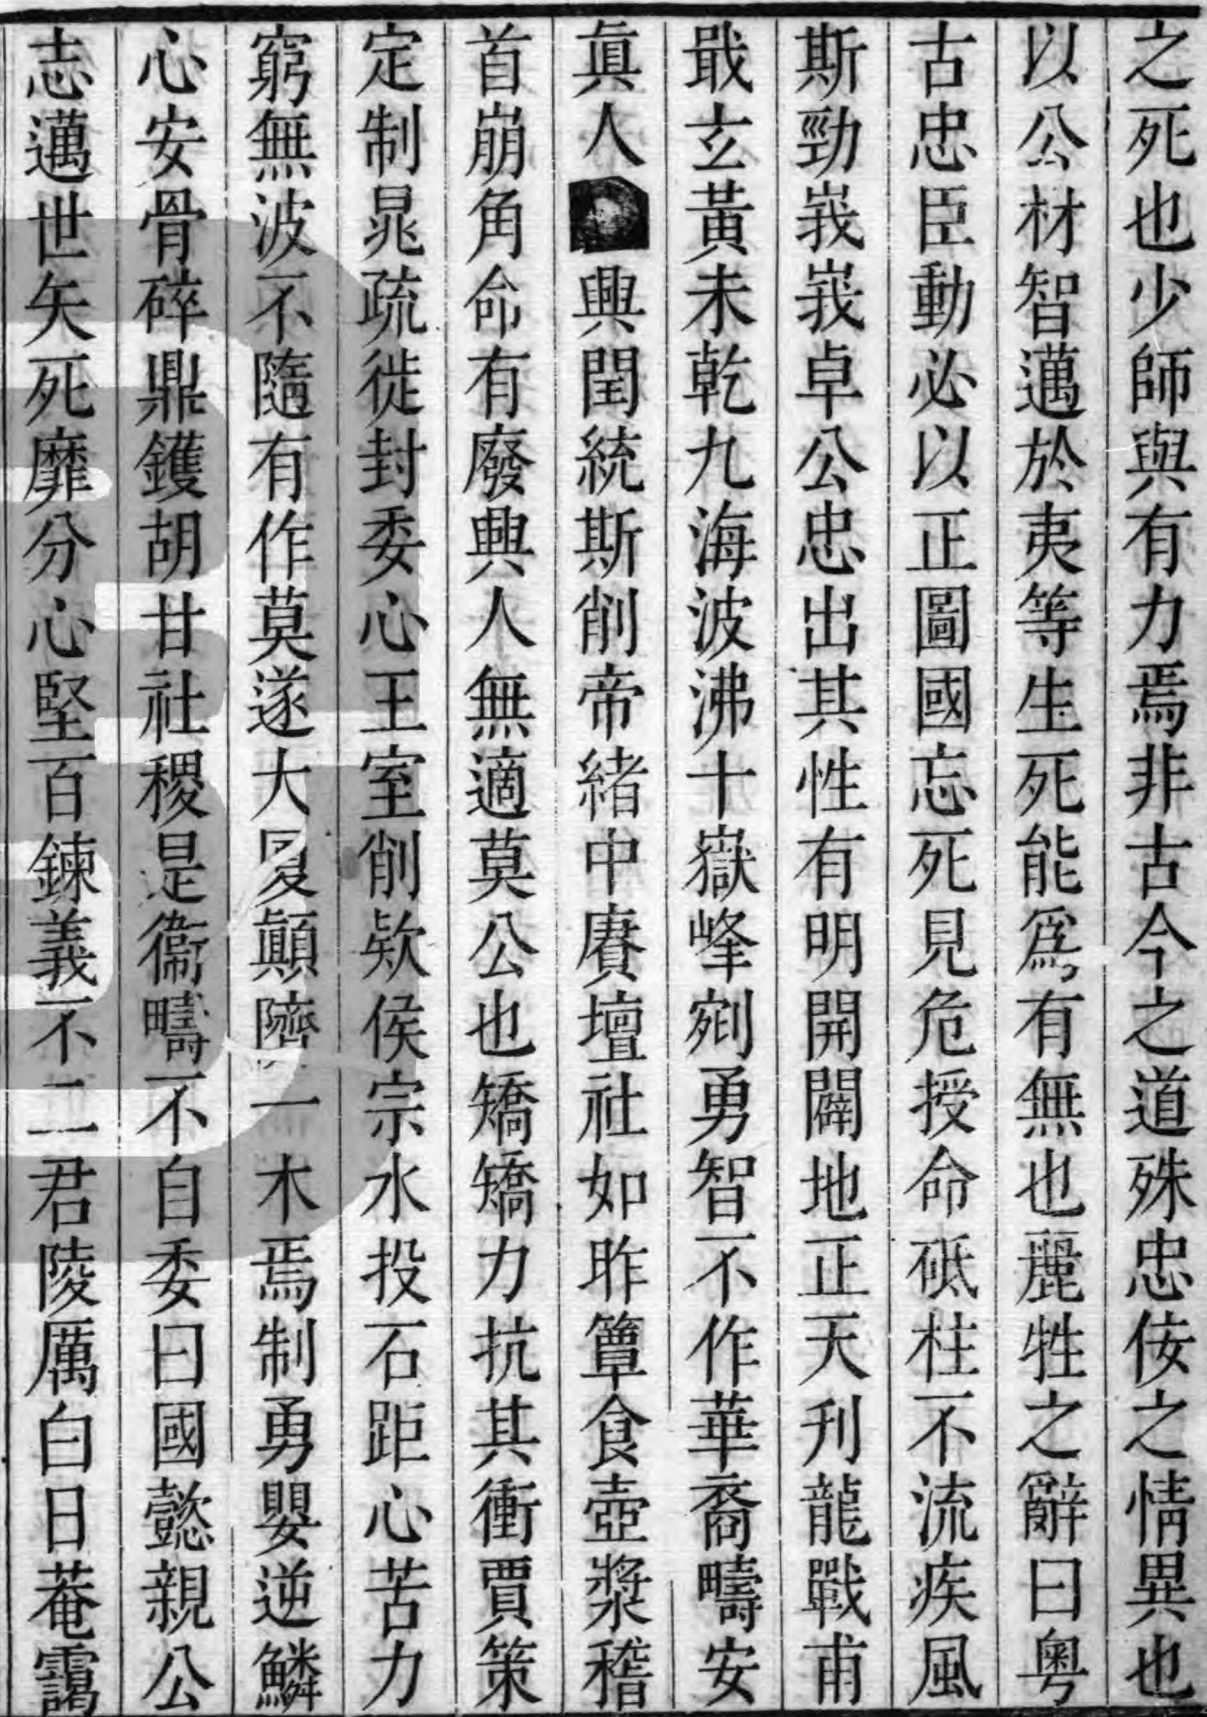 之死也少師與有力焉非古今之道殊忠佞之情異也
以公材智邁於夷等生死能爲有無也麗牲之辭曰粵
古忠臣動必以正圖國忘死見危授命砥柱不流疾風
斯勁峩峩卓公忠出其性有明開闢地正天刋龍戰甫
戢玄黃未乾九海波沸十嶽峰剜勇智不作華裔疇安
眞人興閏統斯削帝緒中賡壇社如昨簞食壺漿稽
首崩角命有廢興人無適莫公也矯矯力抗其衝賈策
定制晁疏徙封委心王室削欵侯宗水投石距心苦力
窮無波不隨有作莫遂大厦顚隮一木焉制勇嬰逆鱗
心安骨碎鼎鑊胡甘社稷是衞疇不自委曰國懿親公
志邁世矢死靡分心堅百鍊義不二君陵厲白日菴靄